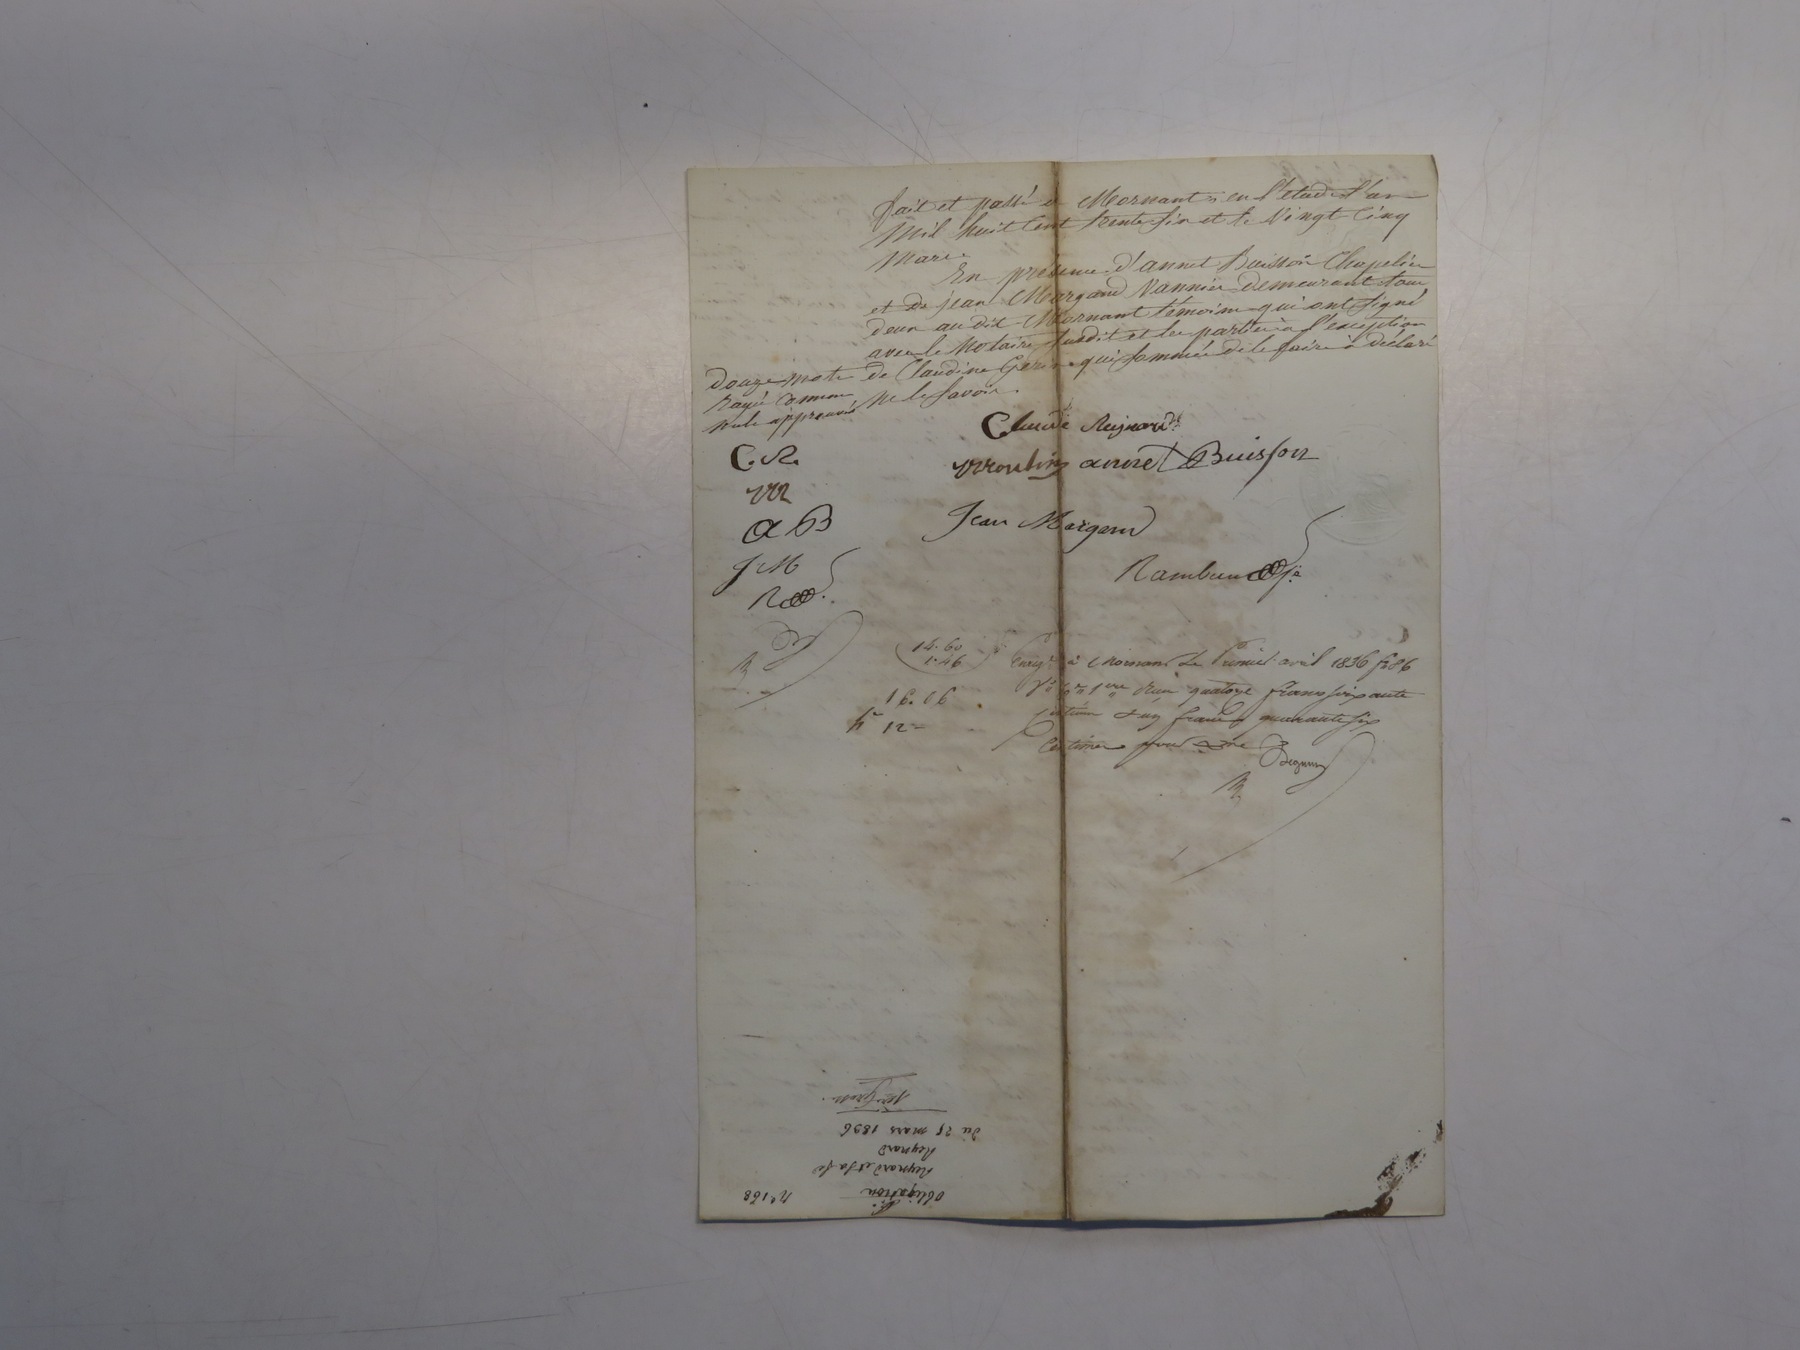 fait et passé à Mornant en l'étude l'an
Mil huit Cent trente six et le Vingt Cinq
Mars.
En présence d'annet Buisson Chapelier
et de jean Margand Vannier demeurant tous
deux au dit Mornant témoins qui ont signé
avec le Notaire susdit et les parties à l'exception
de Claudine Gerin qui sommée de le faire à déclaré
ne le savoir.
Douze mots
Rayés comme
nuls approuvés
Claude Reynard
moulin annet Buisson
Jean Margand
C. R.
m
a B
J M
R
14. 60
1. 46
16. 06
12 =
Enreg. à Mornant Le Premier avril 1836 f° 86
Reçu quatorze francs soixante
Centimes & un franc quarante six
Centimes pour
N° 168
Obligation
Reynard et sa fe
Reynard
du 25 mars 1836